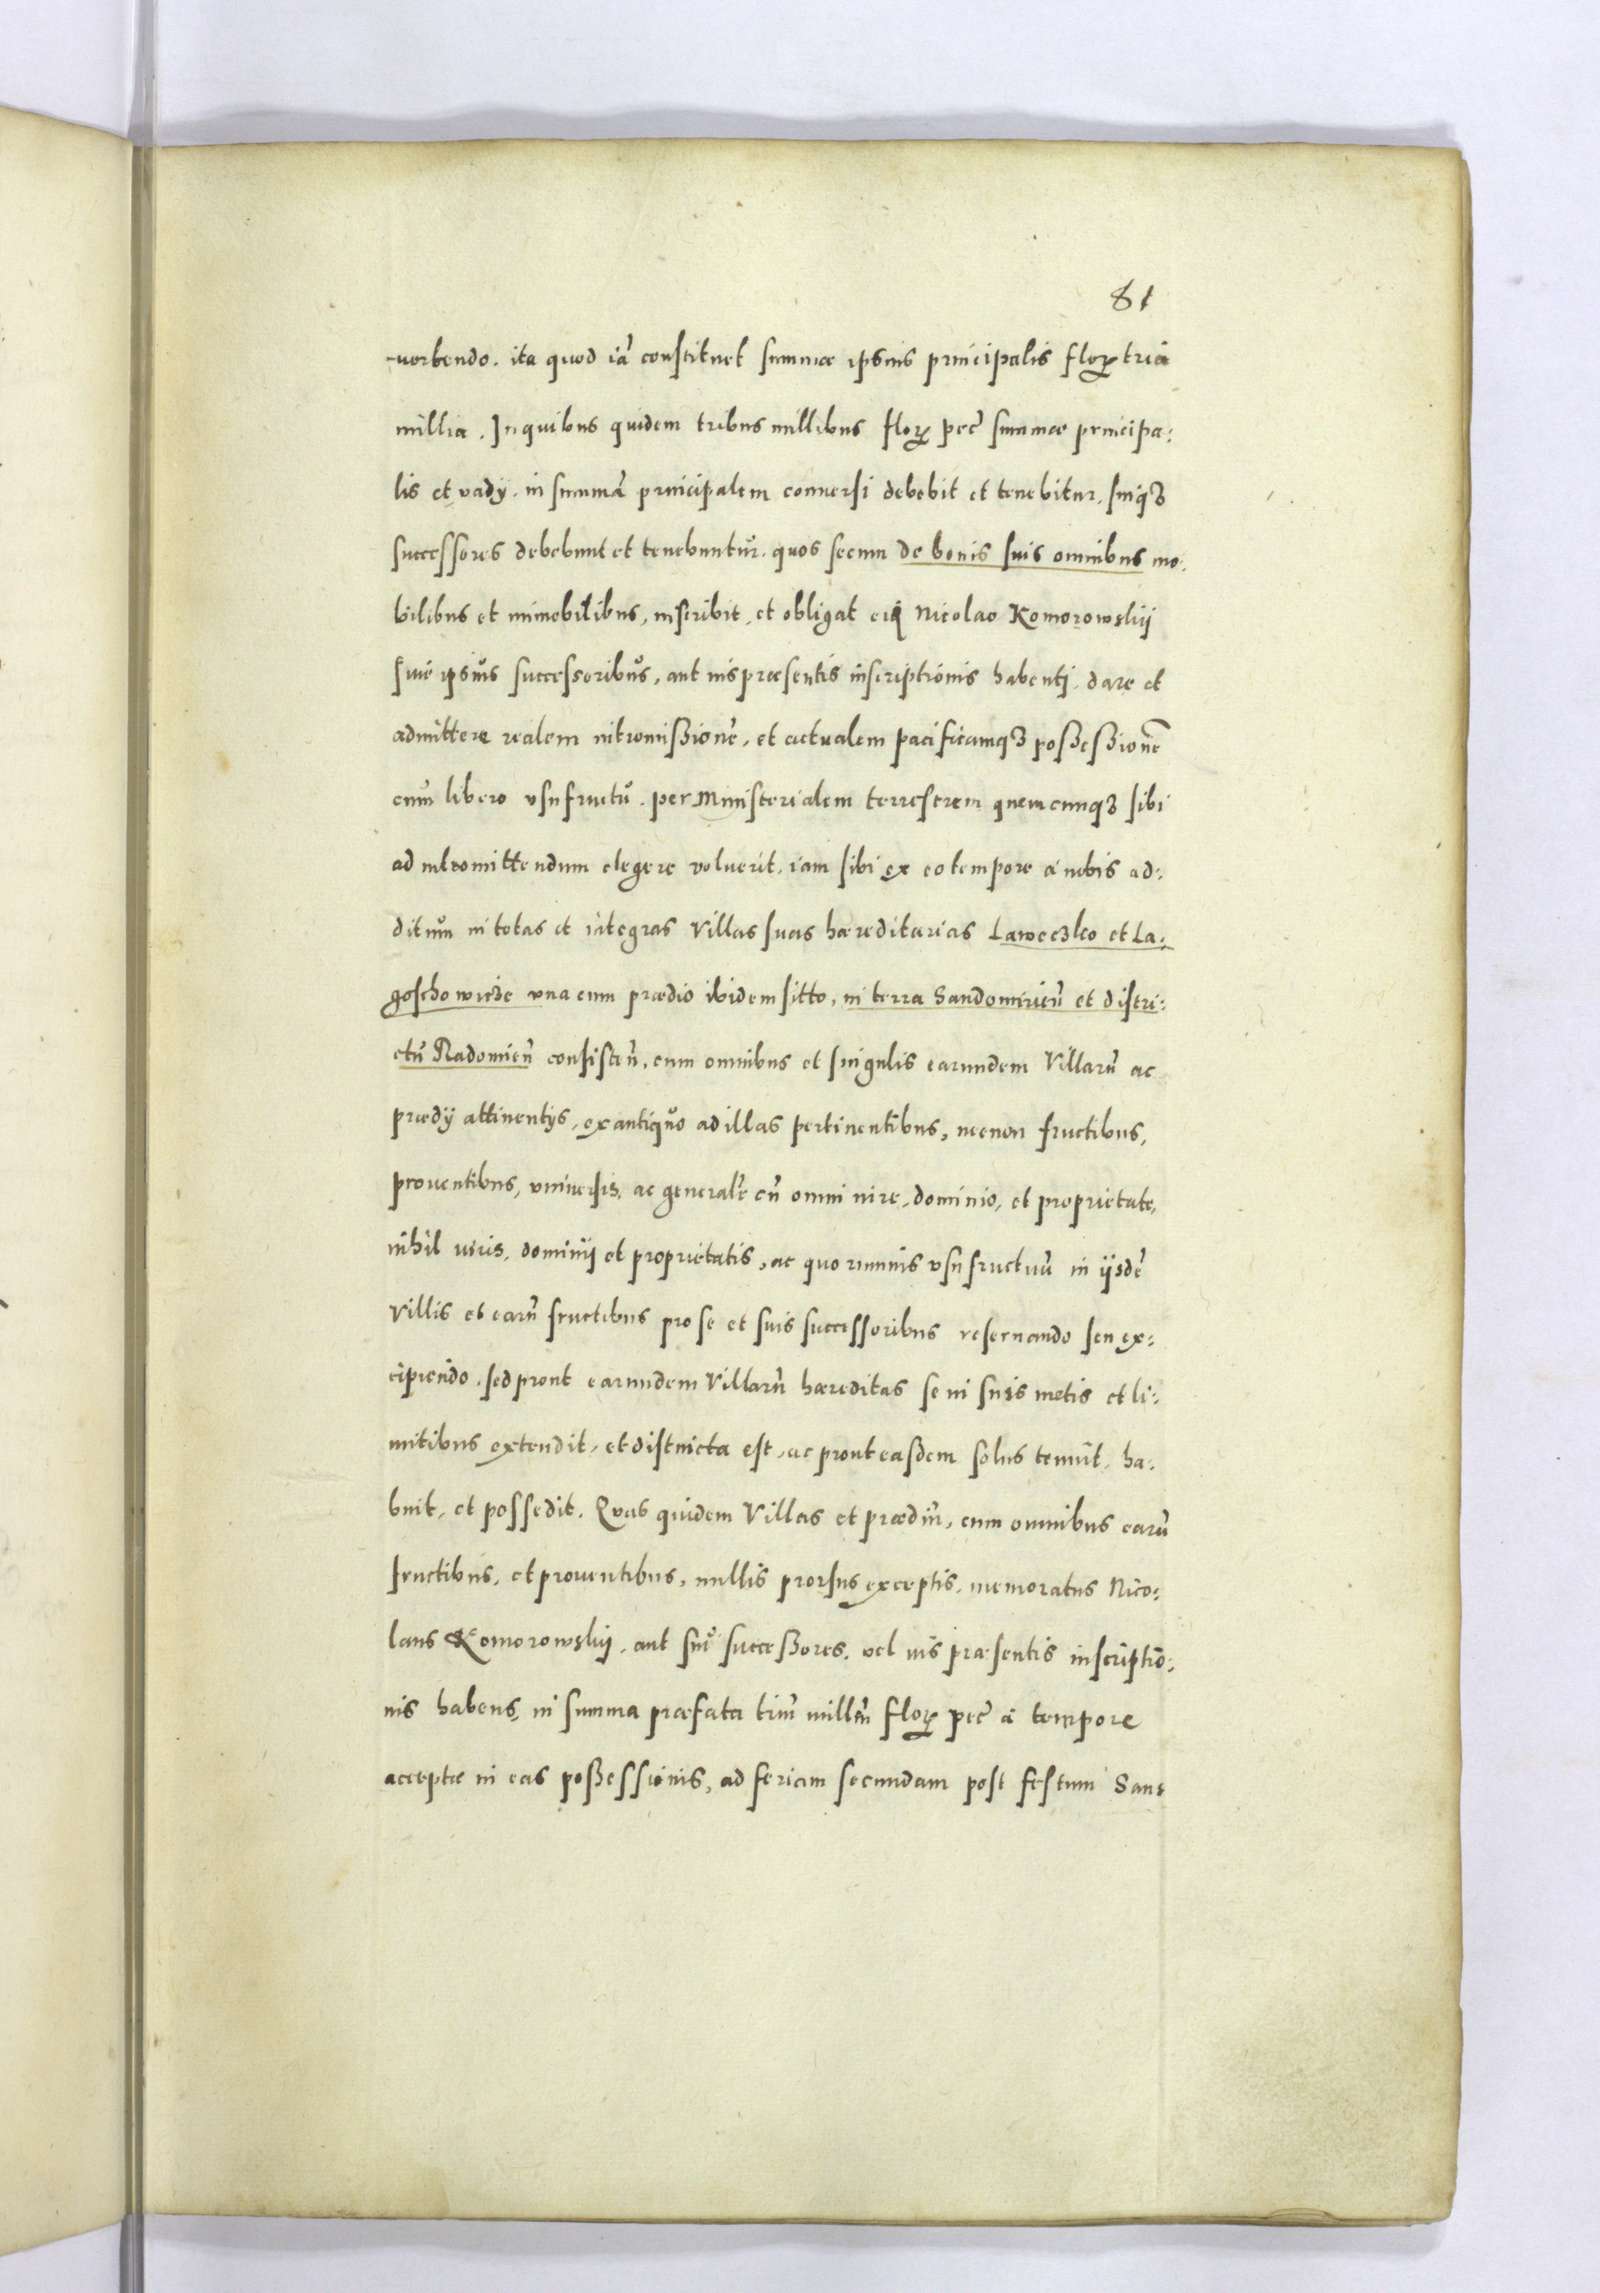 81
uortendo. ita quod iã constituet summæ ipsius principalis florꝝ tria
millia. In quibus quidem tribus millibus florꝝ pec̃ summæ principa:
lis et vadÿ. in summã principalem conuersi debebit et tenebitur. suiqꝫ
successores debebunt et tenebuntůr. quos secum de bonis suis omnibus mo:
bilibus et immobilibus, inscribit, et obligat Nicolao Komorowskij
siue ipsiůs successoribůs, aut ius præsentis inscriptionis habenti. dare et
admittere realem intromißionẽ, et actualem pacificamqꝫ poßeßionẽ
cum libero vsufructů. per Ministerialem terrestrem quemcunqꝫ sibi
ad intromittendum elegere voluerit. iam sibi ex eo tempore à nobis ad:
ditům in totas et integras Villas suas hæreditarias Laweczko et La:
goschowicze vna cum prædio ibidem sitto, in terra Sandomirieñ et distri:
ctů Radomieñ consisteñ, cum omnibus et singulis earundem Villarũ ac
prædÿ attinentÿs, ex antiqůo ad illas pertinentibus, necnon fructibus,
prouentibus, vniuersis, ac general'r cũ omni iure, dominio, et proprietate,
nihil uiris, dominij et proprietatis, ac quorumuis vsufructuũ in ijsdẽ
Villis et earũ fructibus pro se et suis successoribus reseruando seu ex:
cipiendo. sed prout earundem Villarũ hæreditas se in suis metis et li:
mitibus extendit, et distincta est, ac prout easdem solus tenuit, ha:
buit, et possedit. Quas quidem Villas et prædiũ, cum omnibus earũ
fructibus, et prouentibus, nullis prorsus exceptis, memoratus Nico:
laus Komorowskij, aut sui succeßores, vel ius præsentis inscriptio:
nis habens, in summa præfata triũ millm̃ florꝝ pec̃ à tempore
acceptæ in eas poßessionis, ad feriam secundam post festum Sanc